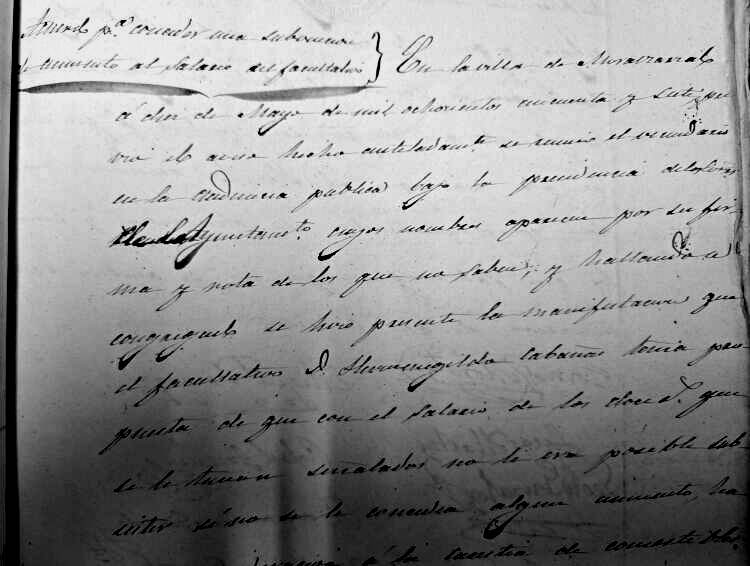 Acuerdo p.ª conceder una subvencion
de aumento al Salario del facultativo
En la villa de
á diez de Mayo de mil ochocientos cincuenta y siete, pre
vio el aviso hecho anteladam.te se reunio el vecindario
en la Audiencia publica bajo la presidencia de los Señores
del Ayuntam.to cuyos nombres aparecen por su fir
ma y nota de los que no saben; y hallandose
congregados se hizo presente la manifestacion que
el facultativo D. Hermenegildo Cabañas tenia pro
puesta de que con el salario de los doce que
se le tienen señalados no le era posible sub
sistir si no se le concedia algun aumento,
á la carestia de comestibles